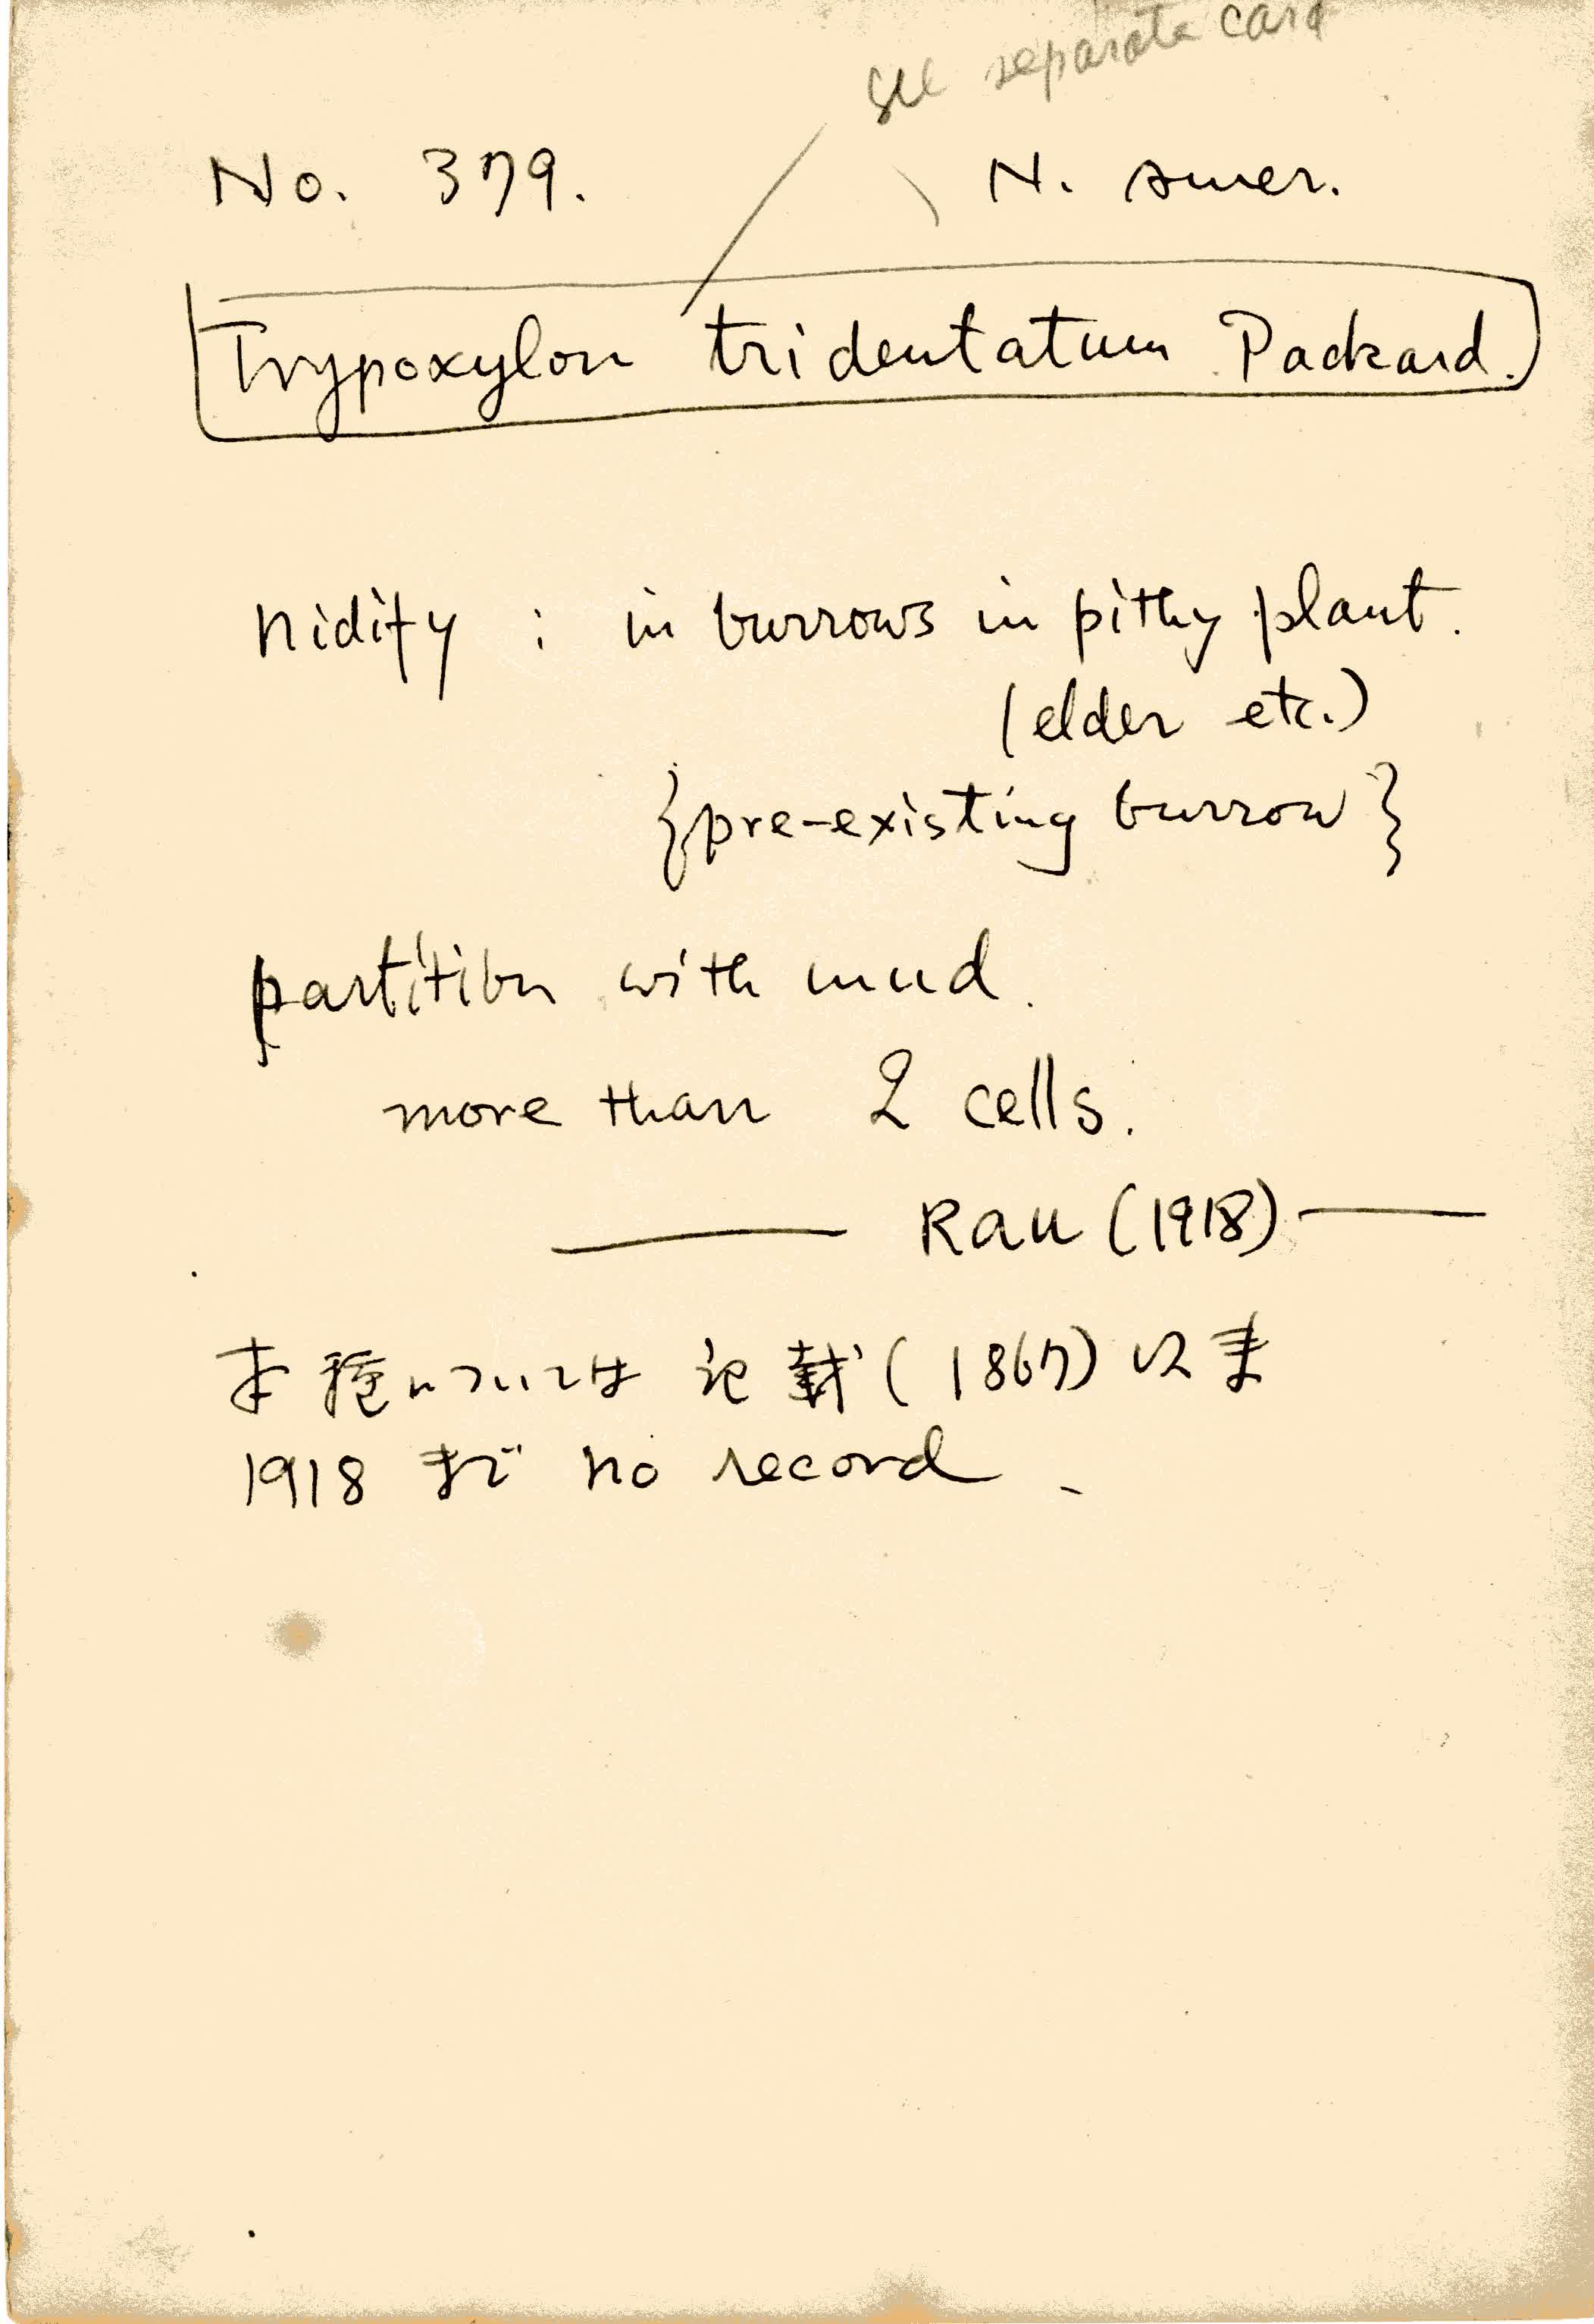 see separate card
No. 379. N. Amer.
Trypoxylon tridentatum Packard.
nidify : in burrows in pithy plant.
(elder etc.)
{pre-existing burrow}
partition with mud.
more than 2 cells.
Rau (1918)
本種については記載(1867)以来
1918まで no record.